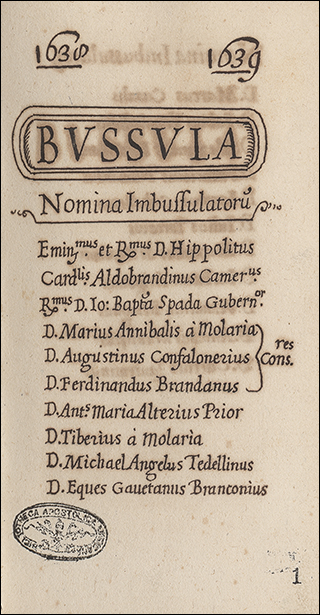 1638 1639
BVSSVLA
Nomina Imbuſſulatorũ
Emin.mus et R.mus D. Hippolitus
Card.lis Aldobrandinus Camer.us
R.mus D. Io: Bapt.a Spada Gubern.or
D. Marius Annibalis à Molaria
D. Augustinus Confalonerius Con.res
D. Ferdinandus Brandanus
D. Ant.s Maria Alterius Prior
D. Tiberius à Molaria
D. Michael Angelus Tedellinus
D. Eques Gauetanus Branconius
1